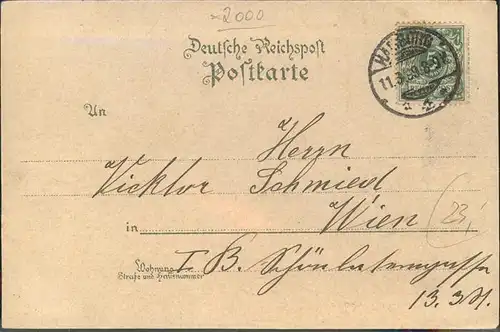 2000
Deutsche Reichspost
Postkarte
HAMBURG
11.3.99.8-9V
An
Herrn
Vicktor Schmied
in Wien
Wohnung I. B. Schönlaterngasse
Straße und Hausnummer
13. 3. St.
(23,